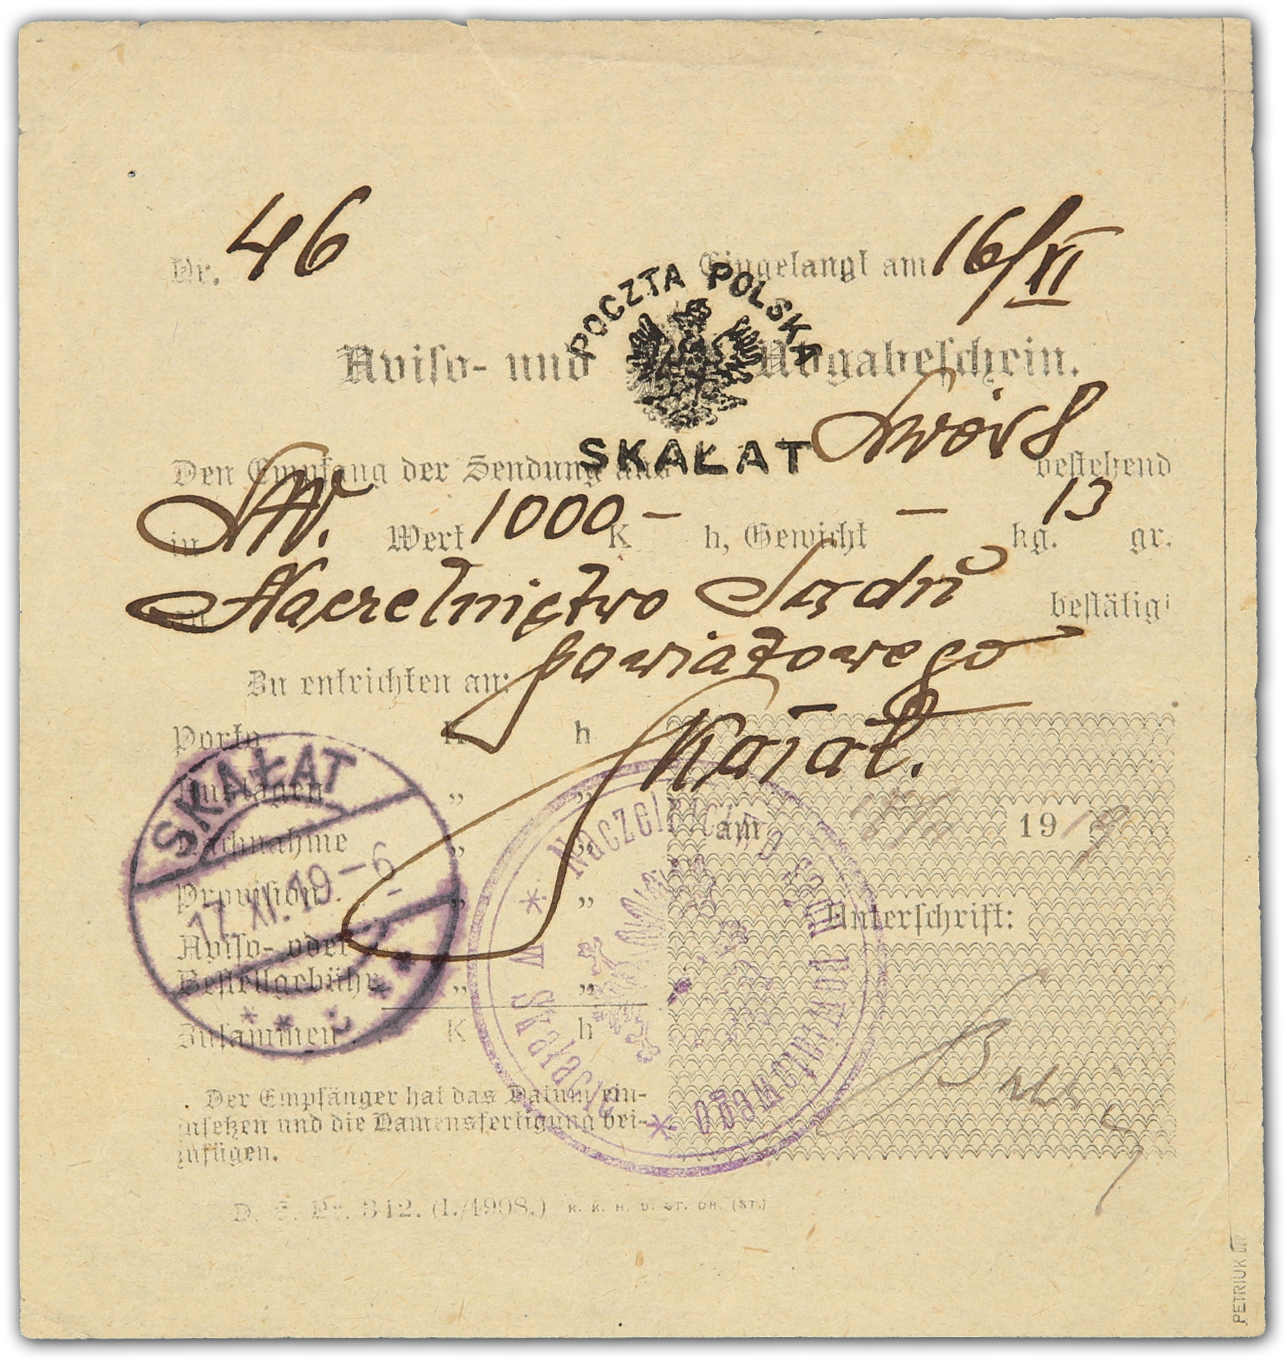 Nr. 46
Eingelangt am 16/XI
POCZTA POLSKA
SKAŁAT
Aviso- und Abgabeschein.
Den Empfang der Sendung aus bestehend
in Wert 1000 K – h, Gewicht – kg. 13 gr.
Naczelnictwo Sądu bestätigt
powiatowego
Zu entrichten an:
Skałat.
Porto K h
Auslagen „ „
Nachnahme „ „
Provision „ „
Aviso- oder
Bestellgebühr „ „
Zusammen K h
SKAŁAT
17.XI.19–6
am 1919
Unterschrift:
* Naczelnictwo Sądu powiatowego * w Skałacie
Der Empfänger hat das Datum ein-
zusetzen und die Namensfertigung bei-
zufügen.
D. S. Nr. 342. (I./1908.) K. K. H. U. ST. DR. (ST.)
PETRIUK